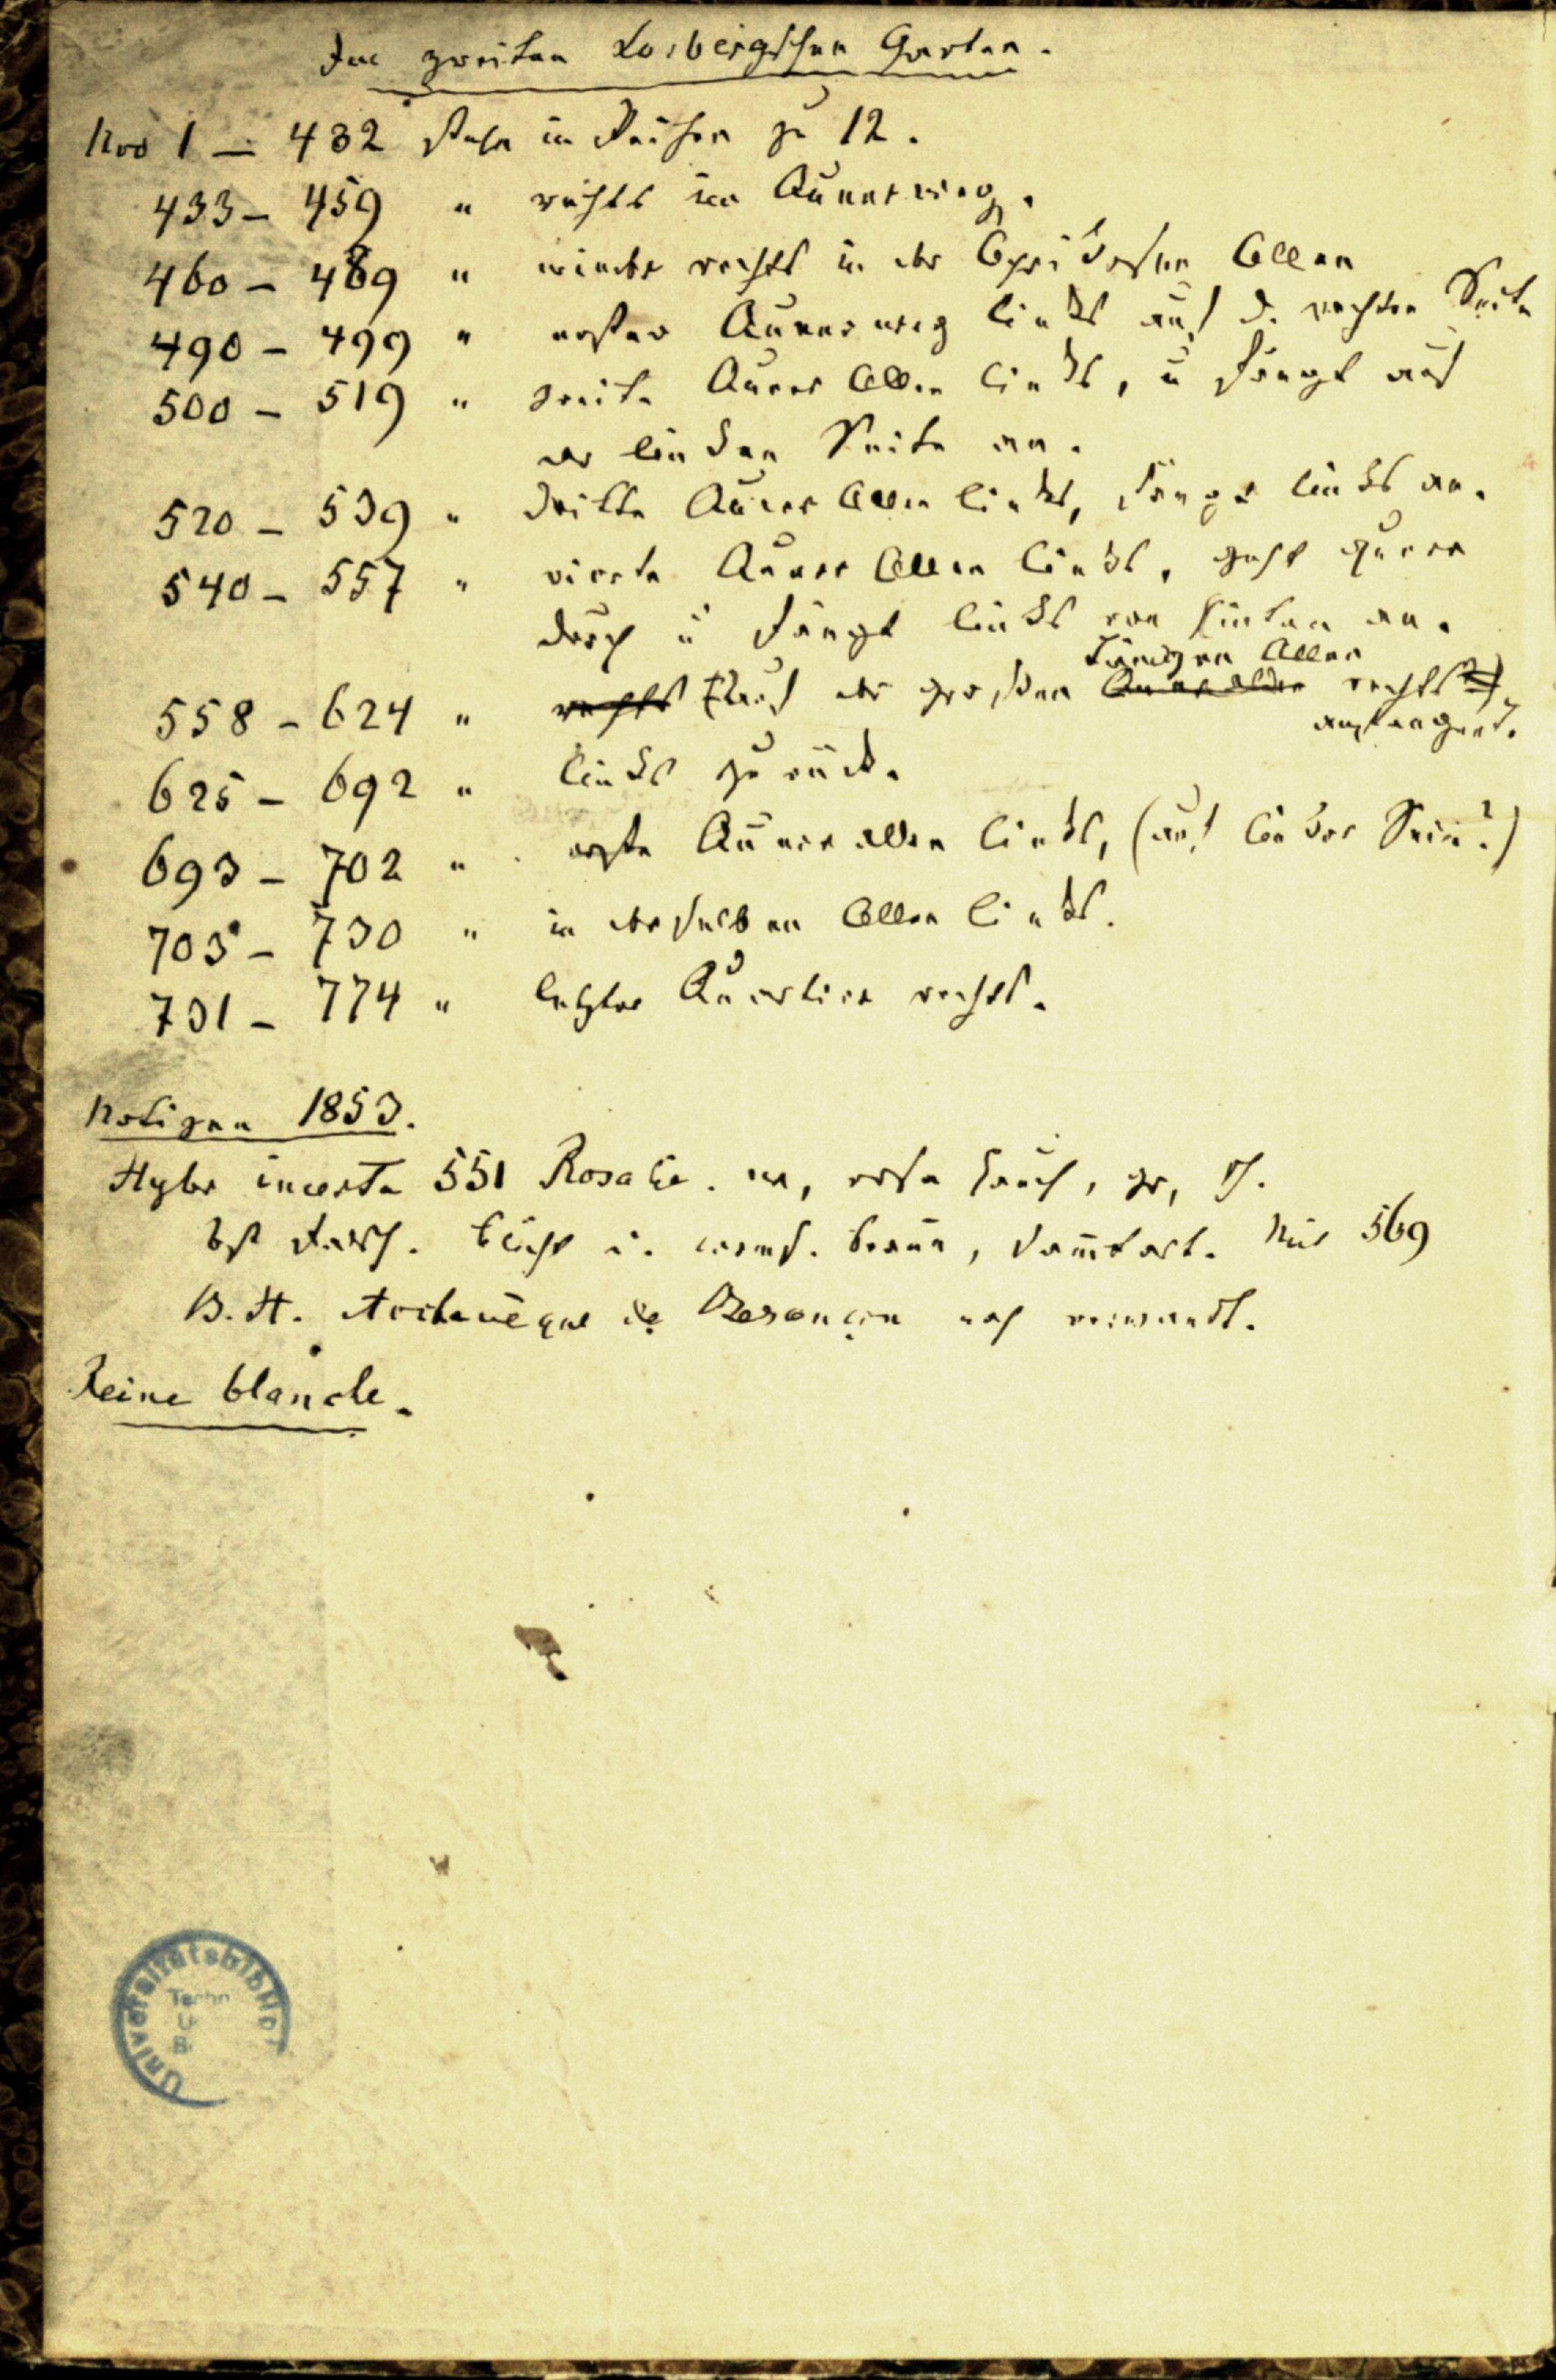 Im zweiten Losbergschen Garten.
Nro 1 — 432 stehn in Reihen zu 12.
433 — 459 " rechts im Queerweg.
460 — 489 " wieder rechts in der Aprikosen Allee
490 — 499 " erster Queerweg links auf d. rechten Seite
500 — 519 " zweite Queer Allee links, u fängt auf
der linken Seite an.
520 — 539 " dritte Queer Allee links, fängt links an.
540 — 557 " vierte Queer Allee links, geht queer
durch u fängt links von hinten an.
Langen Allee
558 — 624 " rechts Auf der großen Queerallee rechts
angefangen.
625 — 692 " links zurück.
693 — 702 " erste Queerallee links, (auf linker Seite?)
703 — 730 " in derselben Allee links.
731 — 774 " letztes Quartier rechts.
Notizen 1853.
Hybr incerta 551 Rosalie. gr,
ist falsch. blüht braun, samtart. Nur 569
B. H. Archevêque de Besançon nah verwandt.
Reine blanche.
Universitätsbibliot
Techn
U
B